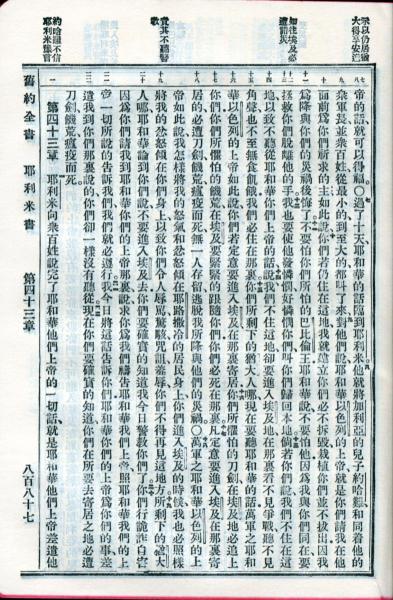 示以仍居猶大得享安逸
如往埃及必遭諸災
責其不聽警敎
約哈難不信耶利米豫言
帝的話就可以得福○過了十天耶和華的話臨到耶利米他就將加利亞的兒子約哈難和同着他的
衆軍長並衆百姓從最小的到至大的都叫了來對他們說耶和華以色列的上帝就是你們請我在他
面前爲你們祈求的主如此說你們若仍住在這地我就建立你們必不拆毀栽植你們並不拔出因我
爲降與你們的災禍後悔了不要怕你們所怕的巴比倫王耶和華說不要怕他因爲我與你們同在要
拯救你們脫離他的手我也要使他發憐憫好憐憫你們叫你們歸回本地倘若你們說我們不住在這
地以致不聽從耶和華你們上帝的話說我們不住這地卻要進入埃及在那裏看不見爭戰聽不見
角聲也不至無食飢餓我們必住在那裏你們所剩下的猶大人哪現在要聽耶和華的話萬軍之耶和
華以色列的上帝如此說你們若定意要進入埃及在那裏寄居你們所懼怕的刀劍在埃及地必追上
你們你們所懼怕的饑荒在埃及要緊緊的跟隨你們你們必死在那裏凡定意要進入埃及在那裏寄
居的必遭刀劍饑荒瘟疫而死無一人存留逃脫我所降與他們的災禍○萬軍之耶和華以色列的上
帝如此說我怎樣將我的怒氣和忿怒傾在耶路撒冷的居民身上你們進入埃及的時候我也必照樣
將我的忿怒傾在你們身上以致你們令人辱罵驚駭咒詛羞辱你們不得再見這地方所剩下的猶大
人哪耶和華論到你們說不要進入埃及去你們要確實的知道我今日警敎你們了你們行詭詐自害
因爲你們請我到耶和華你們的上帝那裏說求你爲我們禱告耶和華我們的上帝照耶和華我們的上
帝一切所說的告訴我們我們必遵行我今日將這話告訴你們耶和華你們的上帝爲你們的事差
遣我到你們那裏說的你們卻一樣沒有聽從現在你們要確實的知道你們在所要去寄居之地必遭
刀劍饑荒瘟疫而死
第四十三章 耶利米向衆百姓說完了耶和華他們上帝的一切話就是耶和華他們上帝差遣他
舊約全書 耶利米書 第四十三章 八百八十七